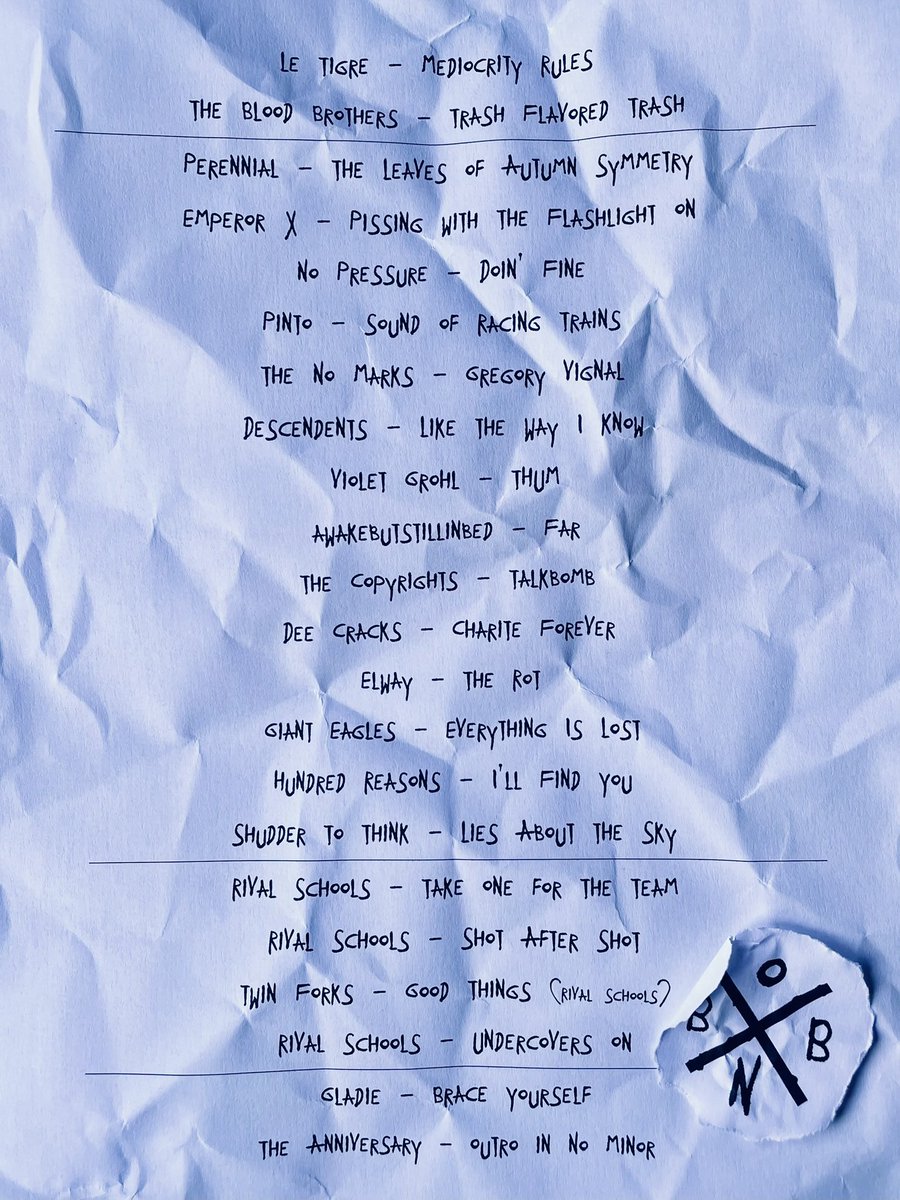 LE TIGRE – MEDIOCRITY RULES
THE BLOOD BROTHERS – TRASH FLAVORED TRASH
PERENNIAL – THE LEAVES OF AUTUMN SYMMETRY
EMPEROR X – PISSING WITH THE FLASHLIGHT ON
NO PRESSURE – DOIN' FINE
PINTO – SOUND OF RACING TRAINS
THE NO MARKS – GREGORY VIGNAL
DESCENDENTS – LIKE THE WAY I KNOW
VIOLET GROHL – THUM
AWAKEBUTSTILLINBED – FAR
THE COPYRIGHTS – TALKBOMB
DEE CRACKS – CHARITE FOREVER
ELWAY – THE ROT
GIANT EAGLES – EVERYTHING IS LOST
HUNDRED REASONS – I'LL FIND YOU
SHUDDER TO THINK – LIES ABOUT THE SKY
RIVAL SCHOOLS – TAKE ONE FOR THE TEAM
RIVAL SCHOOLS – SHOT AFTER SHOT
TWIN FORKS – GOOD THINGS (RIVAL SCHOOLS)
RIVAL SCHOOLS – UNDERCOVERS ON
GLADIE – BRACE YOURSELF
THE ANNIVERSARY – OUTRO IN NO MINOR
O
B B
N